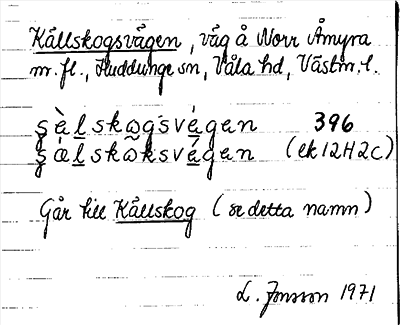 Källskogsvägen, väg å Norr Åmyra
m. fl., Huddunge sn, Våla hd, Västm. l.
ṣàlskωgsvégen 396
ṣálskωksvégen (ek 12H2C)
Går till Källskog (se detta namn)
L. Jonsson 1971